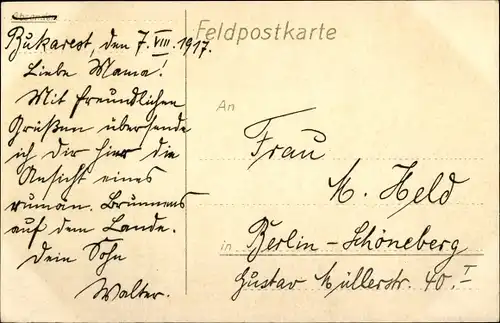 Absender
Bukarest, den 7. VIII. 1917.
Liebe Mama!
Mit freundlichen
Grüßen übersende
ich Dir hier die
Ansicht eines
rumän. Brunnens
auf dem Lande.
Dein Sohn
Walter.
Feldpostkarte
An
Frau
M. Held
in Berlin-Schöneberg
Gustav Müllerstr. 40. I